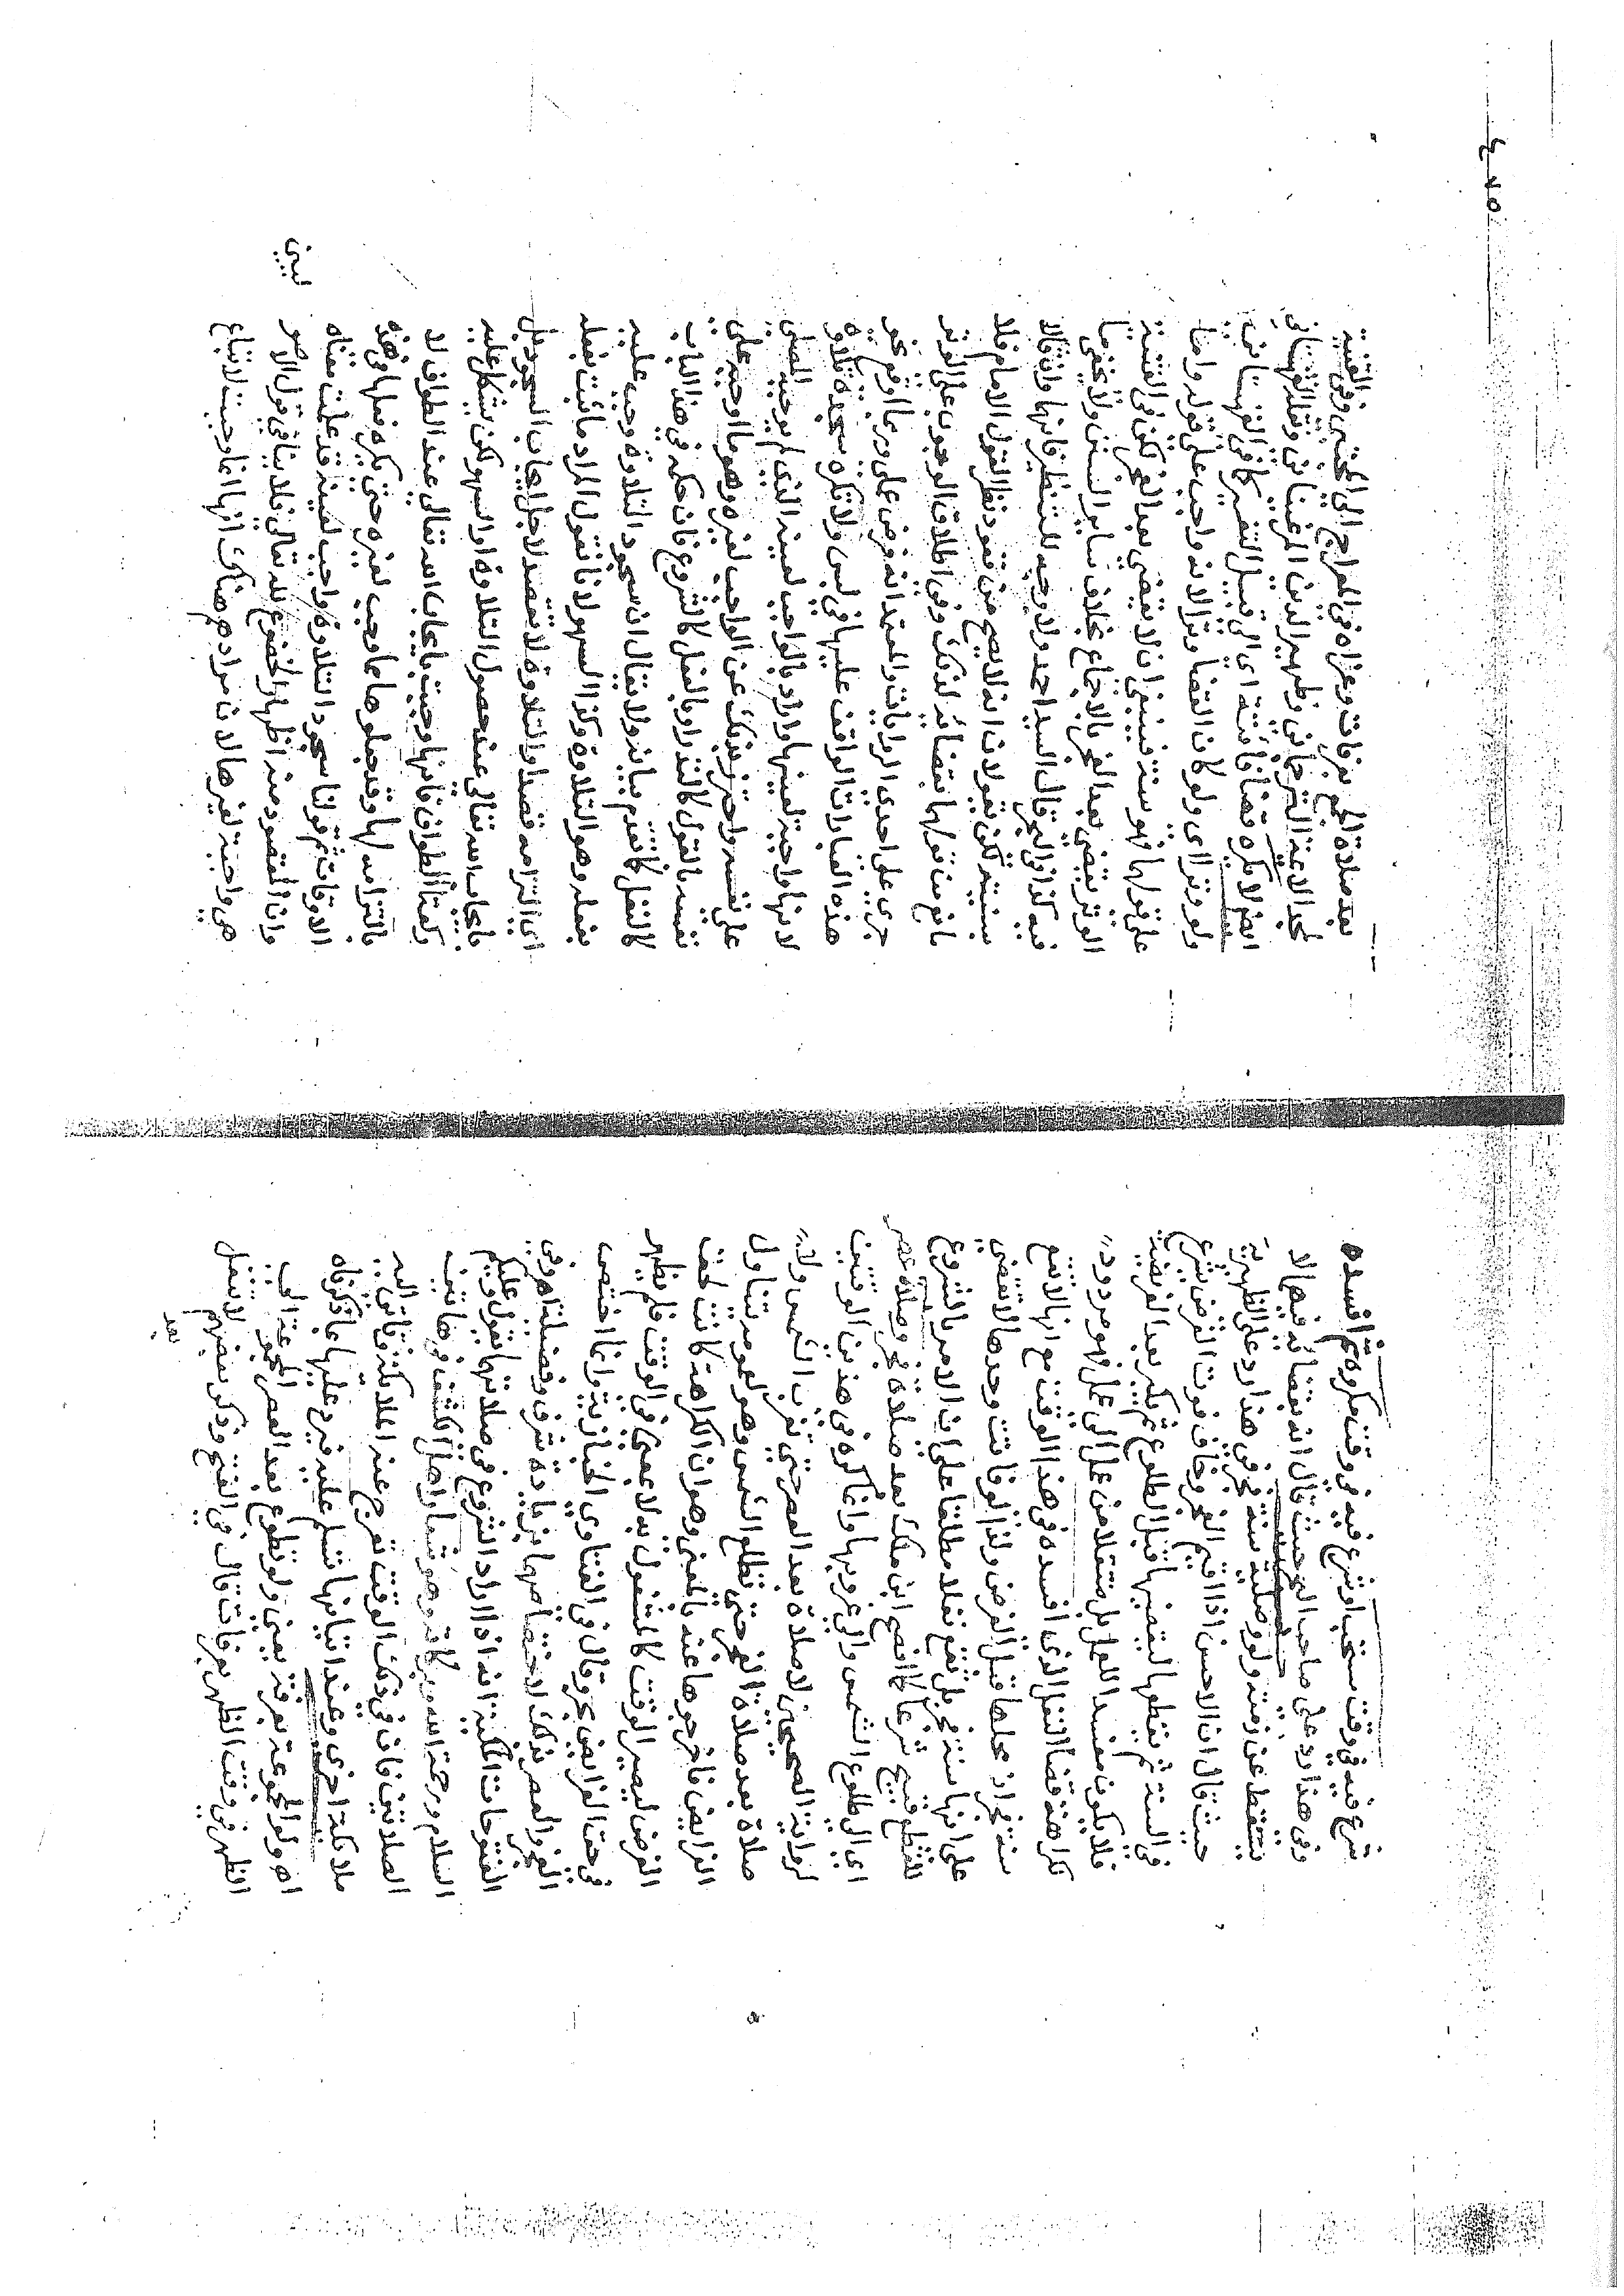 شرع فيه في وقت مستحب او شرع فيه في وقت مكروه ثم افسده
وفي هذا رد على صاحب البحر حيث قال انه بقضائه فيهما لا
تسقط عن ذمته ولو صلية سنة فجر في هذا رد على الظهيرية
حيث قال ان الاحسن اذا اقيم الفجر وخاف فوت الفرض يشرع
في السنة ثم يقطعها ليقضيها قبل الطلوع ثم يكبر بعد الفريضة
فلا يكون مفسدا للعمل بل منتقلا من عمل الى عمل فهو مردود
كراهة قضا النفل الذي افسده في هذا الوقت مع انها لا تقع
سنة فجر لان محلها قبل الفرض ولذا لو فاتت وحدها لا تقضى
على انها سنة فجر بل تقع نفلا مطلقا على ان الامر بالشروع
للقطع قبيح شرعا كما افصح ابن ملك بعد صلاة فجر وصلاة عصر
اي الى طلوع الشمس والى غروبها وانما كره في هذين الوقتين
لرواية الصحيحين لا صلاة بعد العصر حتى تغرب الشمس ولا
صلاة بعد صلاة الفجر حتى تطلع الشمس وهو لعمومه متناول
الفرايض فاخرجوها عنه بالمعنى وهو ان الكراهة كانت لحق
الفرض ليصير الوقت كالمشغول به لا بمعنى في الوقت فلم يظهر
في حق الفرايض بحر وقال في الفتاوي الخبازية وانما اختص
الفجر والعصر بذلك لاختصاصهما بزيادة شرف وفضيلة اهـ وفي
الفتوحات المكية انه اذا اراد الشروع في صلاتها يقول وعليكم
السلام ورحمة الله وبركاته وهو مقام واهل الكشف فيهما تجتمع
الصلاتين فان في ذلك الوقت تعرج عنه املاكه وتاتي اليه
ملائكة اخرى وعند اتيانها تسلم عليه فيرد عليها بما ذكرناه
اهـ ولو المجموعة بعرفة يعني ولو تطوع بعد العصر المجموعة الى
الظهر في وقت الظهر بعرفات قال في الفتح وذكر بعضهم لا يتنفل
بعد
بعد صلاة الجمع بعرفات وعزاه في المعراج الى المجتبى وفي القنية
لمجد الائمة الترجماني وظهير الدين المرغيناني ونقله القهستاني
ايضا لا يكره قضا فائتة اي الى قبيل التغير كما في القهستاني
ولو وترا اي ولو كان القضا وترا لانه واجب على قوله واما
على قولهما فهو سنة فينبغي ان لا يقضى بعد الفجر لكن في القنية
الوتر يقضى بعد الفجر بالاجماع بخلاف ساير السنن ولا يخفى ما
فيه كذا في البحر قال السيد احمد ولا وجه للتنظير فانهما وان قالا
بسنيته لكن يقولان انه لا يصح من قعود نظرا لقول الامام فلا
مانع من قولهما بقضائه لذلك وفي اطلاق الوجوب على الوتر
جري على احدى الروايات والمعتمد انه فرض على وربما اوقع نحو
هذه العبارات الواقف عليها في لبس ولا تكره سجدة تلاوة
لانها واجبة لعينها واراد بالواجب لعينه الذي لم يوجبه المصلي
على نفسه واحترز بذلك عن الواجب لغيره وهو ما اوجبه على
نفسه بالقول كالنذر او بالفعل كالشروع فان حكمه في هذا الباب
كالنفل كما تقدم بيانه ولا يقال ان سجود التلاوة وجب عليه
بفعله وهو التلاوة وكذا السهو لانا نقول المراد ما ثبت بفعله
اي التزامه قصدا والتلاوة لا تقصد لاجل ايجاب السجود بل
بايجاب الله تعالى عند حصول التلاوة او السهو لكن يشكل عليه
ركعتا الطواف فانها وجبت بايجاب الله تعالى عند الطواف لا
بالتزامه لها وقد جعلوها مما وجب لغيره حتى يكره فعلها في هذه
الاوقات ثم قولنا سجود التلاوة واجب لعينه قد علمت معناه
وان المقصود منه اظهار الخضوع لله تعالى فلا ينافي قول الاصو
ليين
هي واجبة لغيرها لان مرادهم بذلك انها انما وجبت لاتباع